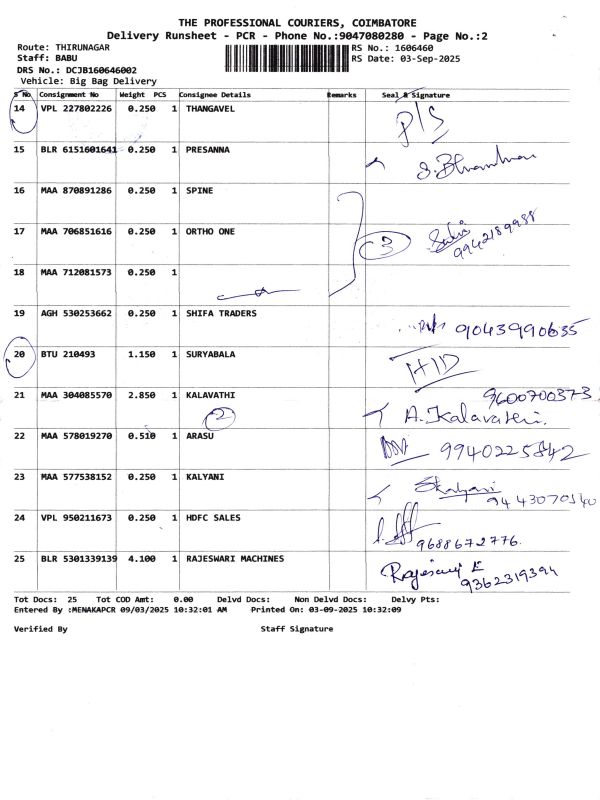 THE PROFESSIONAL COURIERS, COIMBATORE
Delivery Runsheet - PCR - Phone No.:9047080280 - Page No.:2
Route: THIRUNAGAR RS No.: 1606460
Staff: BABU RS Date: 03-Sep-2025
DRS No.: DCJB160646002
Vehicle: Big Bag Delivery
S No. Consignment No Weight PCS Consignee Details Remarks Seal & Signature
14 VPL 227802226 0.250 1 THANGAVEL P/S
15 BLR 6151601641 0.250 1 PRESANNA
16 MAA 870891286 0.250 1 SPINE
17 MAA 706851616 0.250 1 ORTHO ONE 3 9942189988
18 MAA 712081573 0.250 1
19 AGH 530253662 0.250 1 SHIFA TRADERS 9043990635
20 BTU 210493 1.150 1 SURYABALA
21 MAA 304085570 2.850 1 KALAVATHI 9600700373
2 A. Kalavathi.
22 MAA 578019270 0.510 1 ARASU 9940225842
23 MAA 577538152 0.250 1 KALYANI
9443070540
24 VPL 950211673 0.250 1 HDFC SALES
9688672776.
25 BLR 5301339139 4.100 1 RAJESWARI MACHINES
9362319394
Tot Docs: 25 Tot COD Amt: 0.00 Delvd Docs: Non Delvd Docs: Delvy Pts:
Entered By :MENAKAPCR 09/03/2025 10:32:01 AM Printed On: 03-09-2025 10:32:09
Verified By Staff Signature